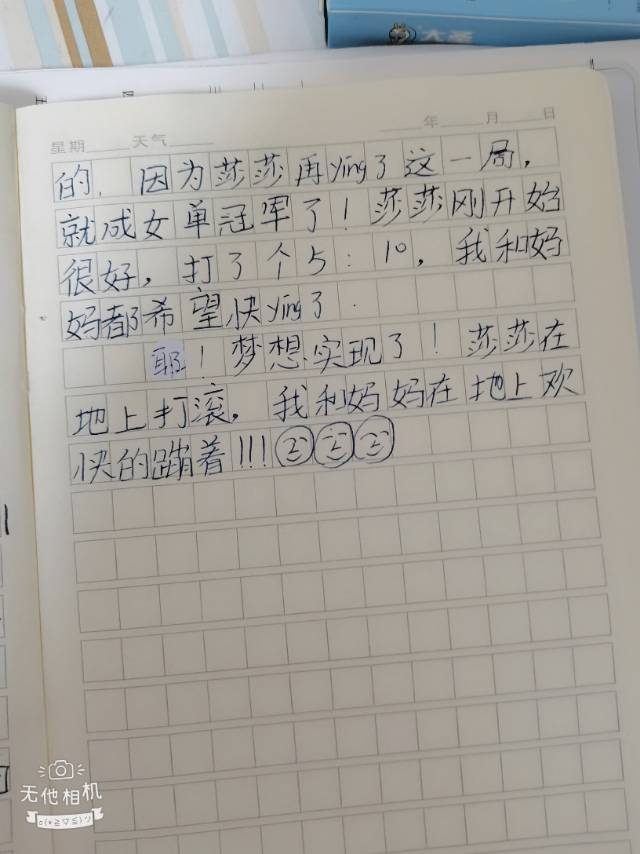 大圣
星期 天气 年 月 日
的，因为莎莎再ying了这一局，
就成女单冠军了！莎莎刚开始
很好，打了个5：10，我和妈
妈都希望快ying了.
耶！梦想实现了！莎莎在
地上打滚，我和妈妈在地上欢
快的蹦着!!!
无他相机